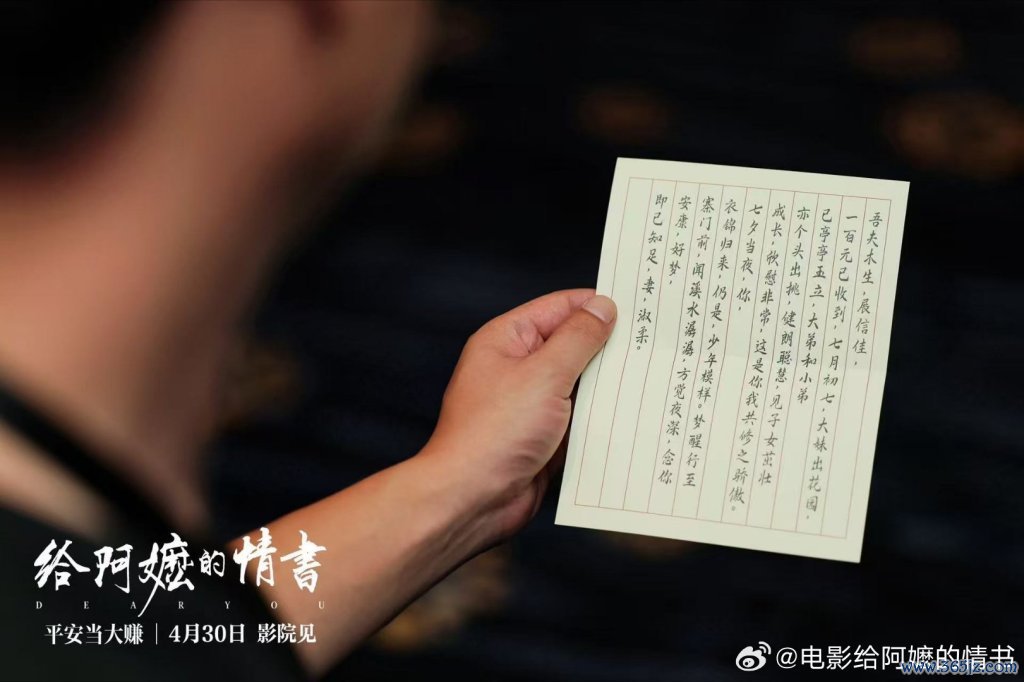 吾夫木生，展信佳，
一百元已收到，七月初七，大妹出花园，
已亭亭玉立，大弟和小弟
亦个头出挑，健朗聪慧，见子女茁壮
成长，欣慰非常，这是你我共修之骄傲。
七夕当夜，你，
衣锦归来，仍是，少年模样。梦醒行至
寨门前，闻溪水潺潺，方觉夜深，念你
安康，好梦，
即已知足，妻，淑柔。
给阿嬷的情書
DEAR YOU
平安当大赚 | 4月30日 影院见
@电影给阿嬷的情书
www.365jz.com